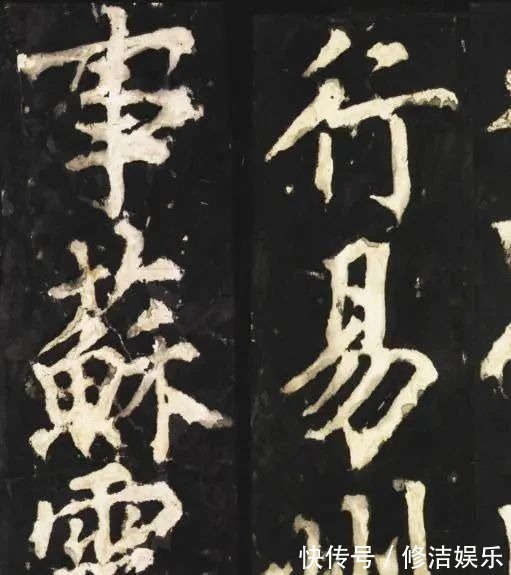 行易州
事蘇靈
快传号 / 修洁娱乐